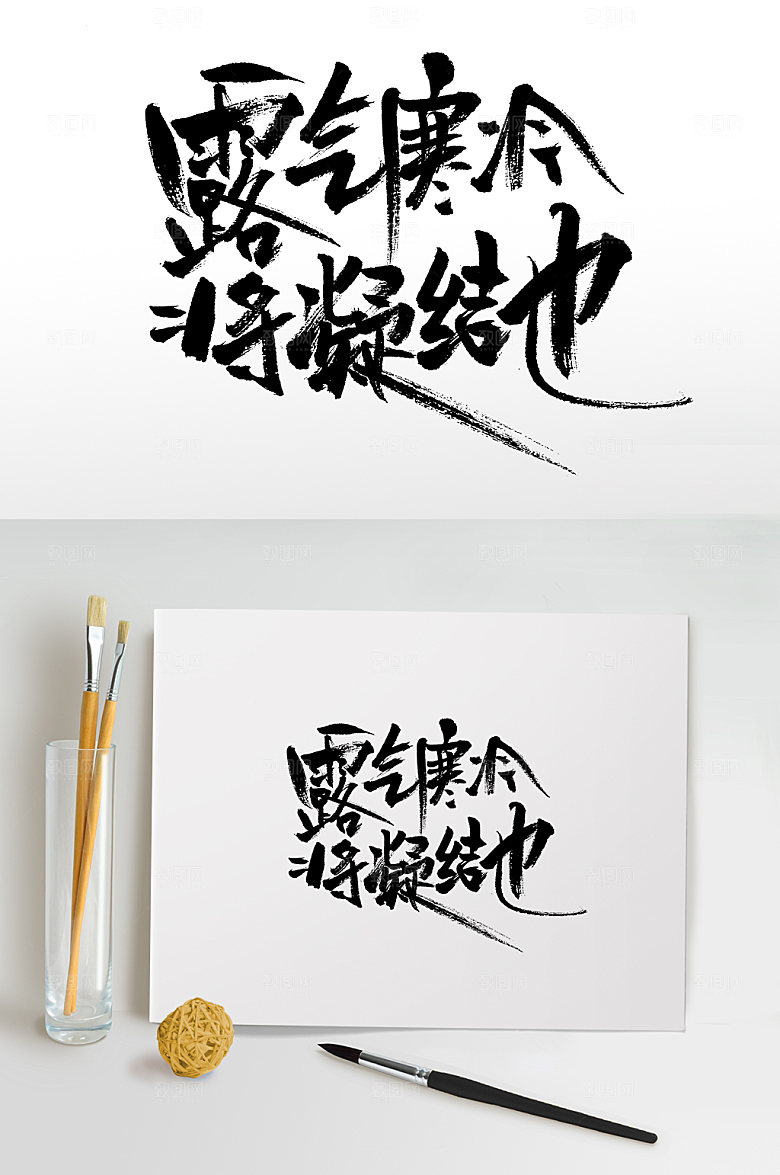 露气寒冷
将凝结也
露气寒冷
将凝结也